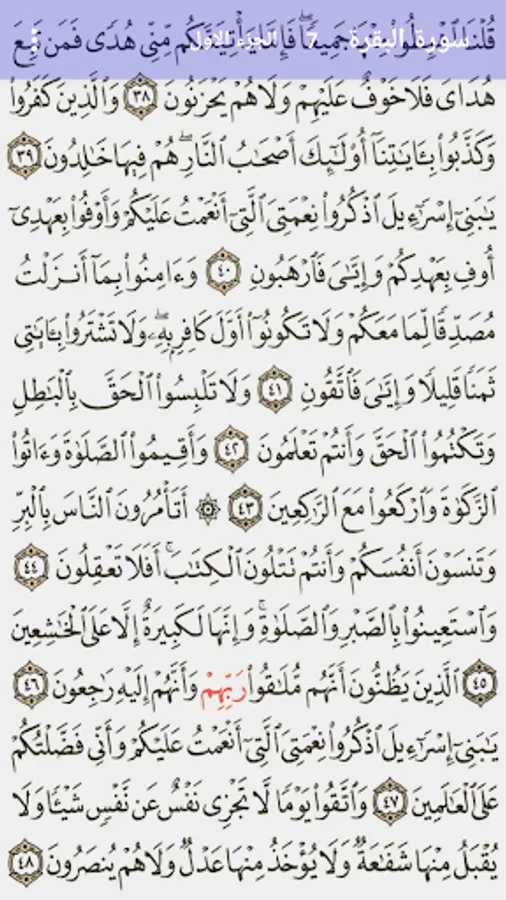 سورة البقرة 7 الجزء الأول
قُلْنَا ٱهْبِطُوا۟ مِنْهَا جَمِيعًۭا ۖ فَإِمَّا يَأْتِيَنَّكُم مِّنِّى هُدًۭى فَمَن تَبِعَ
هُدَاىَ فَلَا خَوْفٌ عَلَيْهِمْ وَلَا هُمْ يَحْزَنُونَ ٣٨ وَٱلَّذِينَ كَفَرُوا۟
وَكَذَّبُوا۟ بِـَٔايَـٰتِنَآ أُو۟لَـٰٓئِكَ أَصْحَـٰبُ ٱلنَّارِ ۖ هُمْ فِيهَا خَـٰلِدُونَ ٣٩
يَـٰبَنِىٓ إِسْرَٰٓءِيلَ ٱذْكُرُوا۟ نِعْمَتِىَ ٱلَّتِىٓ أَنْعَمْتُ عَلَيْكُمْ وَأَوْفُوا۟ بِعَهْدِىٓ
أُوفِ بِعَهْدِكُمْ وَإِيَّـٰىَ فَٱرْهَبُونِ ٤٠ وَءَامِنُوا۟ بِمَآ أَنزَلْتُ
مُصَدِّقًۭا لِّمَا مَعَكُمْ وَلَا تَكُونُوٓا۟ أَوَّلَ كَافِرٍۭ بِهِۦ ۖ وَلَا تَشْتَرُوا۟ بِـَٔايَـٰتِى
ثَمَنًۭا قَلِيلًۭا وَإِيَّـٰىَ فَٱتَّقُونِ ٤١ وَلَا تَلْبِسُوا۟ ٱلْحَقَّ بِٱلْبَـٰطِلِ
وَتَكْتُمُوا۟ ٱلْحَقَّ وَأَنتُمْ تَعْلَمُونَ ٤٢ وَأَقِيمُوا۟ ٱلصَّلَوٰةَ وَءَاتُوا۟
ٱلزَّكَوٰةَ وَٱرْكَعُوا۟ مَعَ ٱلرَّٰكِعِينَ ٤٣ ۞ أَتَأْمُرُونَ ٱلنَّاسَ بِٱلْبِرِّ
وَتَنسَوْنَ أَنفُسَكُمْ وَأَنتُمْ تَتْلُونَ ٱلْكِتَـٰبَ ۚ أَفَلَا تَعْقِلُونَ ٤٤
وَٱسْتَعِينُوا۟ بِٱلصَّبْرِ وَٱلصَّلَوٰةِ ۚ وَإِنَّهَا لَكَبِيرَةٌ إِلَّا عَلَى ٱلْخَـٰشِعِينَ
٤٥ ٱلَّذِينَ يَظُنُّونَ أَنَّهُم مُّلَـٰقُوا۟ رَبِّهِمْ وَأَنَّهُمْ إِلَيْهِ رَٰجِعُونَ ٤٦
يَـٰبَنِىٓ إِسْرَٰٓءِيلَ ٱذْكُرُوا۟ نِعْمَتِىَ ٱلَّتِىٓ أَنْعَمْتُ عَلَيْكُمْ وَأَنِّى فَضَّلْتُكُمْ
عَلَى ٱلْعَـٰلَمِينَ ٤٧ وَٱتَّقُوا۟ يَوْمًۭا لَّا تَجْزِى نَفْسٌ عَن نَّفْسٍۢ شَيْـًۭٔا وَلَا
يُقْبَلُ مِنْهَا شَفَـٰعَةٌۭ وَلَا يُؤْخَذُ مِنْهَا عَدْلٌۭ وَلَا هُمْ يُنصَرُونَ ٤٨